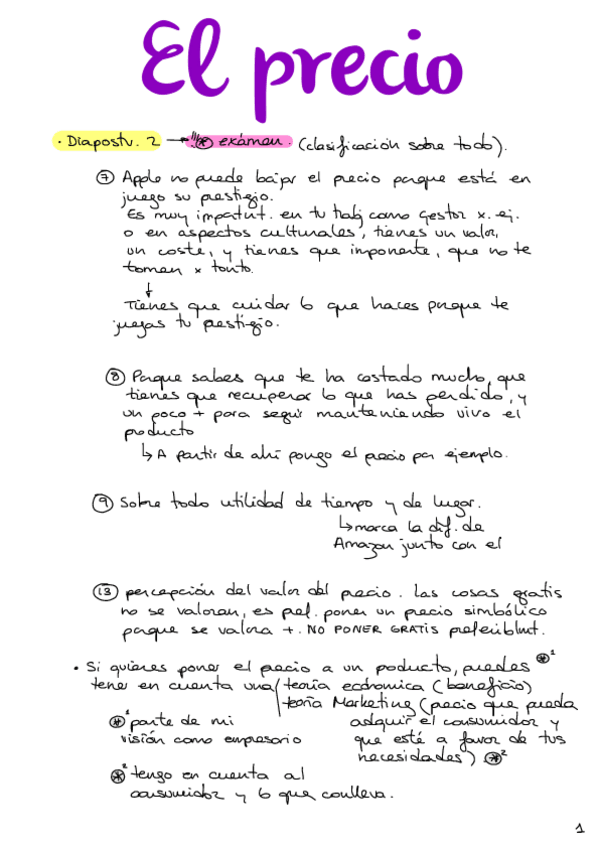 El precio
· Diapostv. 2 → !!! * exámen. (clasificación sobre todo).
7 Apple no puede bajar el precio porque está en
juego su prestigio.
Es muy importnt. en tu trabj como gestor x. ej.
o en aspectos culturales, tienes un valor,
un coste, y tienes que imponerte, que no te
tomen x tonto.
↓
Tienes que cuidar lo que haces porque te
juegas tu prestigio.
8 Porque sabes que te ha costado mucho, que
tienes que recuperar lo que has perdido, y
un poco + para seguir manteniendo vivo el
producto
↳ A partir de ahí pongo el precio por ejemplo.
9 Sobre todo utilidad de tiempo y de lugar.
↳ marca la dif. de
Amazon junto con el
13 percepción del valor del precio. Las cosas gratis
no se valoran, es pref. poner un precio simbólico
porque se valora +. NO PONER GRATIS preferiblmt.
· Si quieres poner el precio a un producto, puedes *1
tener en cuenta una / teoría económica (beneficio)
teoría Marketing (precio que pueda
adquir el consumidor y
que esté a favor de tus
necesidades) *2
*1 parte de mi
visión como empresario
*2 tengo en cuenta al
consumidor y lo que conlleva.
1